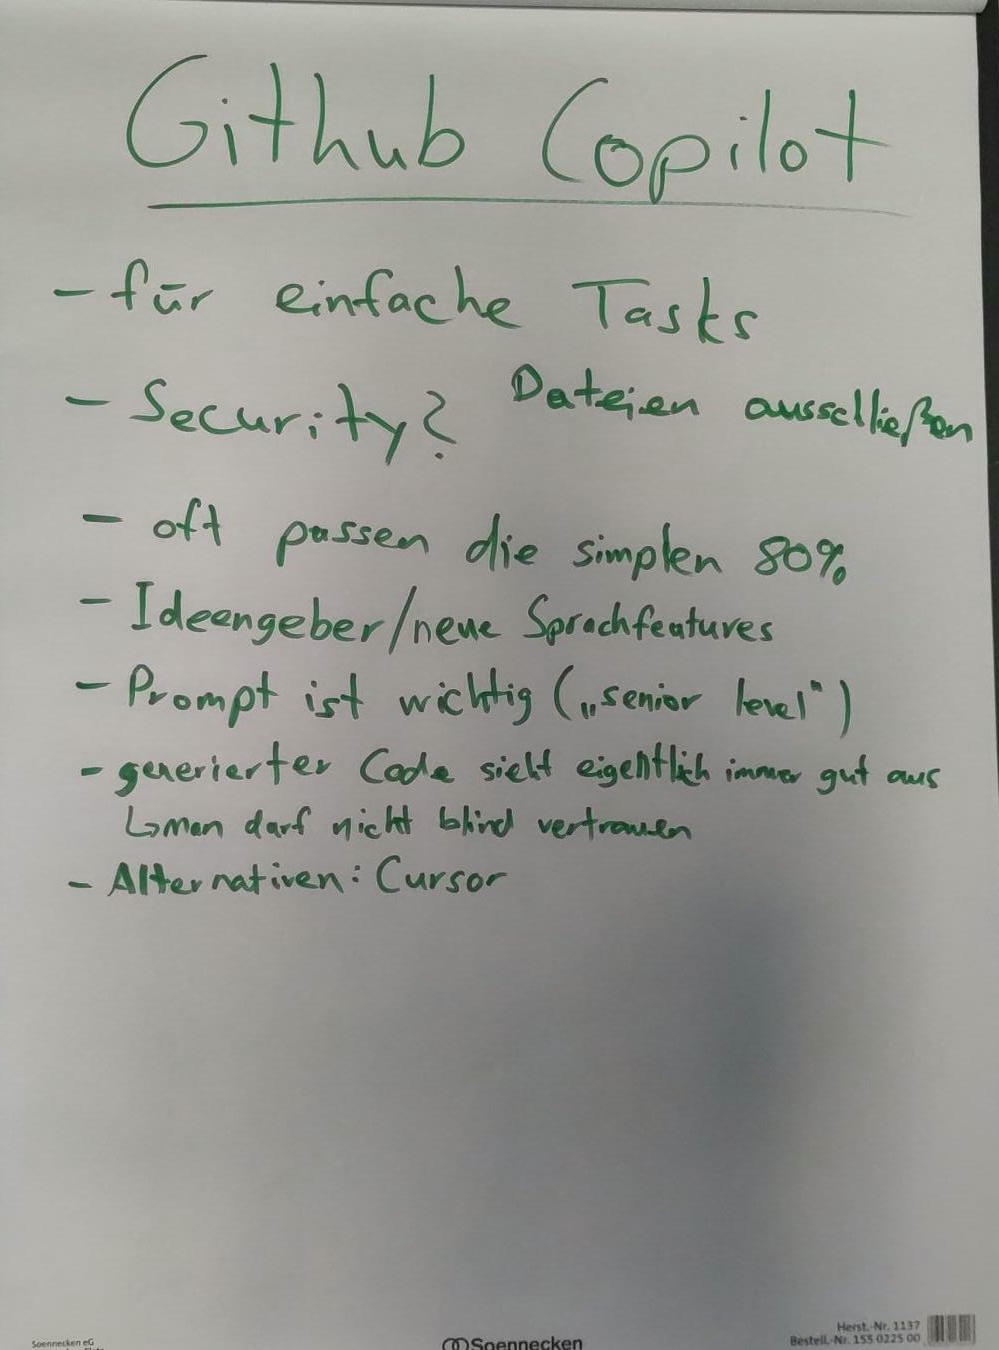 Github Copilot
- für einfache Tasks
- Security? Dateien ausschließen
- oft passen die simplen 80%
- Ideengeber/neue Sprachfeatures
- Prompt ist wichtig („senior level“)
- generierter Code sieht eigentlich immer gut aus
↳ man darf nicht blind vertrauen
- Alternativen: Cursor
Soennecken eG
Soennecken
Herst.-Nr. 1137
Bestell.-Nr. 155 0225 00